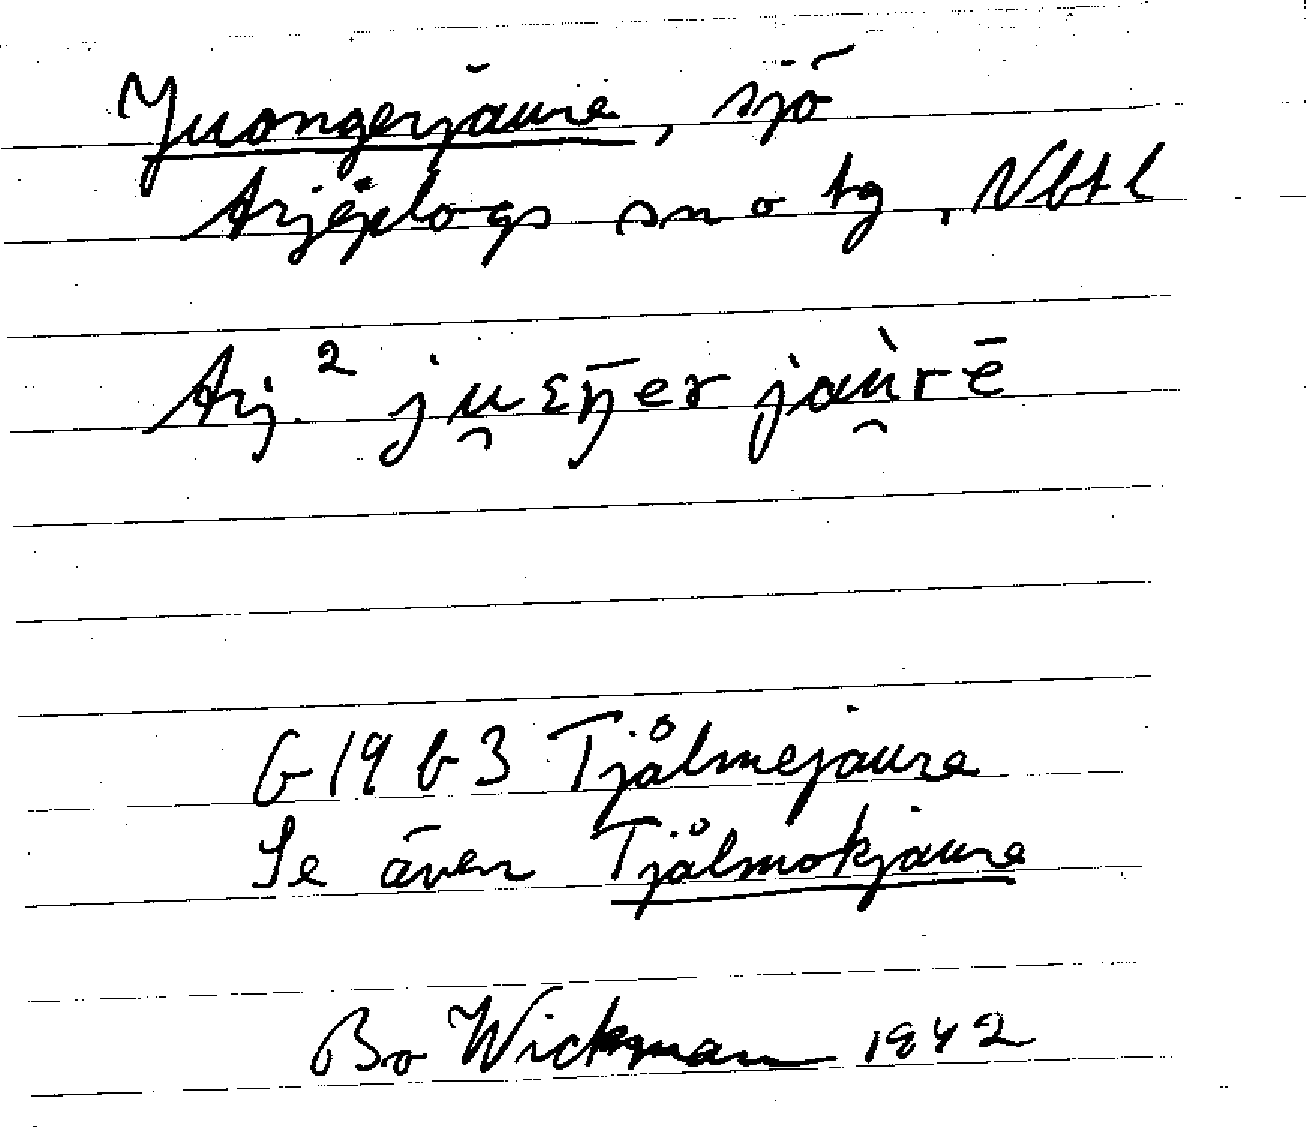 Juongerjaure, sjö
Arjeplogs sn o tg, Nbtl
Arj.² ju̯ɛŋ̄er jaù̯rē
G 19 b 3 Tjålmejaure
Se även Tjålmokjaure
Bo Wickman 1942